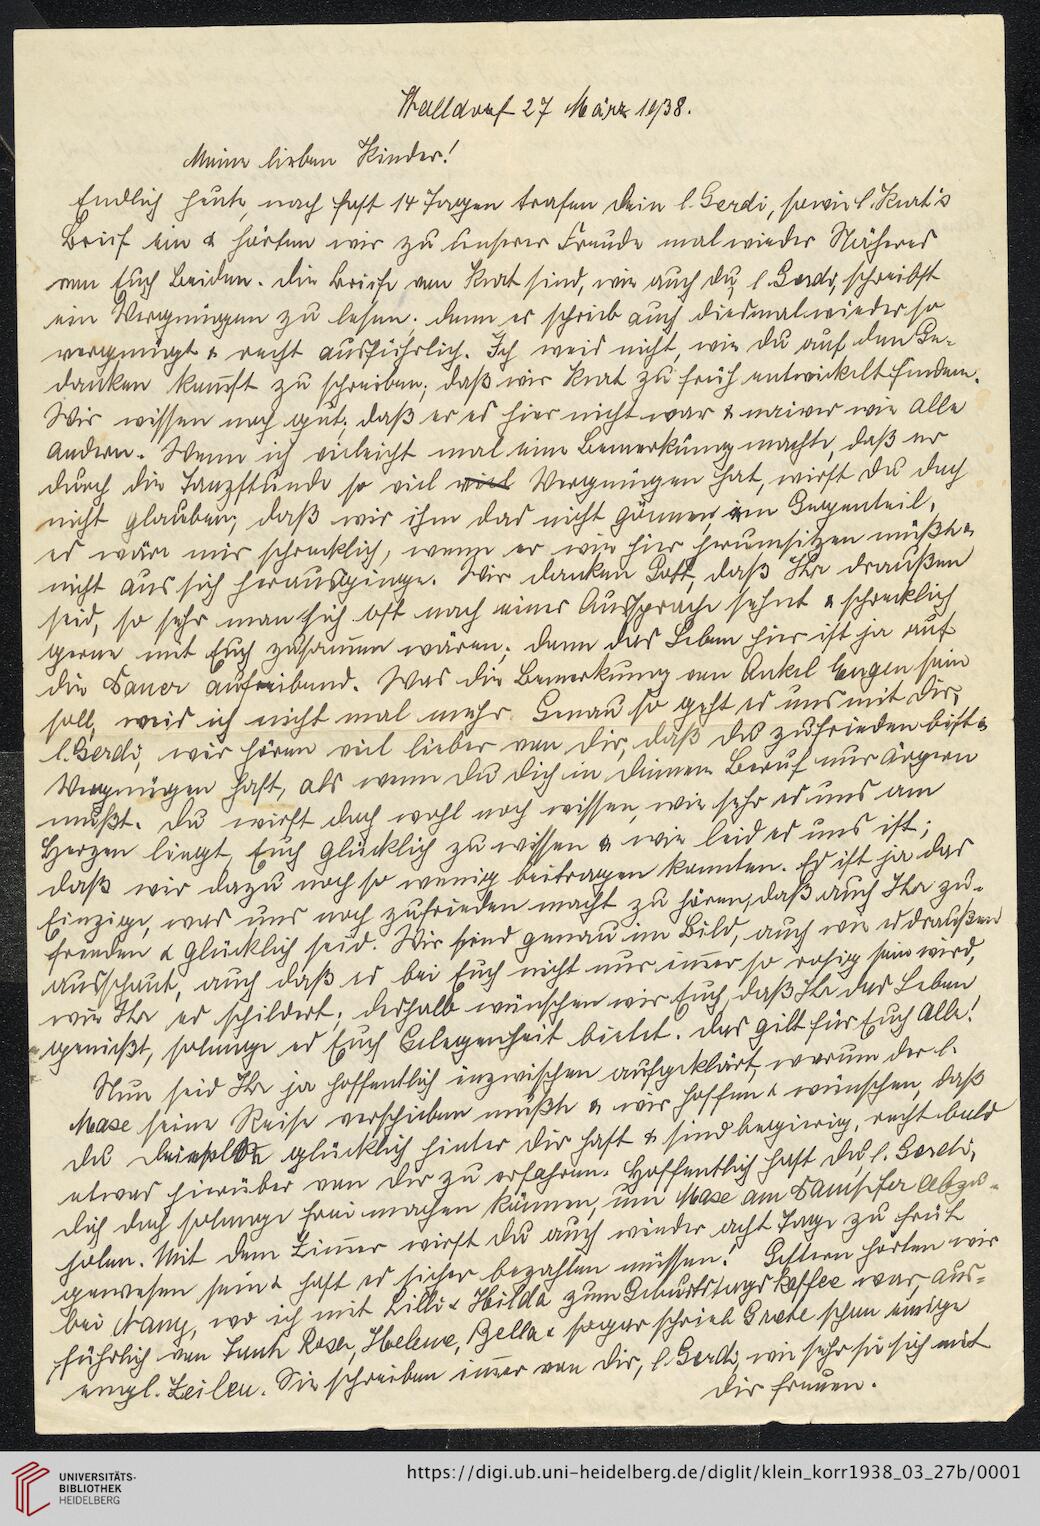 Walldorf 27 März 1938.
Meine lieben Kinder!
Endlich heute, nach fast 14 Tagen trafen Dein l. Gerdi, sowie l. Kurt's
Brief ein & hörten wir zu unserer Freude mal wieder Näheres
von Euch Beiden. Die Briefe von Kurt sind, wie auch Du, l. Gerdi, schreibst
ein Vergnügen zu lesen; denn er schrieb auch diesmal wieder so
vergnügt & recht ausführlich. Ich weis nicht, wie Du auf den Ge-
danken kamst zu schreiben; daß wir Kurt zu früh entwickelt finden.
Wir wissen noch gut, daß er es hier nicht war & naiver wie alle
Andern. Wenn ich vieleicht mal eine Bemerkung machte, daß er
durch die Tanzstunde so viel viel Vergnügen hat, wirst Du doch
nicht glauben; daß wir ihm das nicht gönnen, im Gegenteil,
es wäre mir schrecklich, wenn er wie hier herumsitzen müßte &
nicht aus sich herausginge. Wir danken Gott, daß Ihr draußen
seid, so sehr man sich oft nach einer Aussprache sehnt & schrecklich
gerne mit Euch zusammen wären; denn das Leben hier ist ja auf
die Dauer aufreibend. Was die Bemerkung von Onkel Eugen sein
soll, weis ich nicht mal mehr. Genau so geht es uns mit Dir,
l. Gerdi, wir hören viel lieber von Dir, daß Du zufrieden bist &
Vergnügen hast, als wenn Du Dich in Deinem Beruf nur ärgern
mußt. Du wirst doch wohl noch wissen, wie sehr es uns am
Herzen liegt, Euch glücklich zu wissen & wie leid es uns ist;
daß wir dazu noch so wenig beitragen konnten. Es ist ja das
Einzige, was uns noch zufrieden macht zu hören, daß auch Ihr zu-
frieden & glücklich seid. Wir sind genau im Bild, auch wie es draußen
ausschaut, auch daß es bei Euch nicht nur immer so rosig sein wird,
wie Ihr es schildert; deshalb wünschen wir Euch, daß Ihr das Leben
genießt, solange es Euch Gelegenheit bietet. Das gilt für Euch Alle!
Nun seid Ihr ja hoffentlich inzwischen aufgeklärt, warum der l.
Maxe seine Reise verschieben mußte & wir hoffen & wünschen, daß
Du glücklich hinter Dir hast & sind begierig, recht bald
etwas hierüber von Dir zu erfahren. Hoffentlich hast Du, l. Gerdi,
Dich doch solange frei machen können, um Maxe am Dampfer abzu-
holen. Mit dem Zimmer wirst Du auch wieder acht Tage zu früh
gewesen sein & hast es sicher bezahlen müssen? Gestern hörten wir
bei Nany, wo ich mit Lilli & Hilda zum Geburtstags Kaffee war, aus-
führlich von Tante Rosa, Helene, Bella & sogar schrieb Grete schon einige
engl. Zeilen. Sie schreiben immer von Dir, l. Gerdi, wie sehr sie sich mit
Dir freuen.
UNIVERSITÄTS-
BIBLIOTHEK
HEIDELBERG
https://digi.ub.uni-heidelberg.de/diglit/klein_korr1938_03_27b/0001